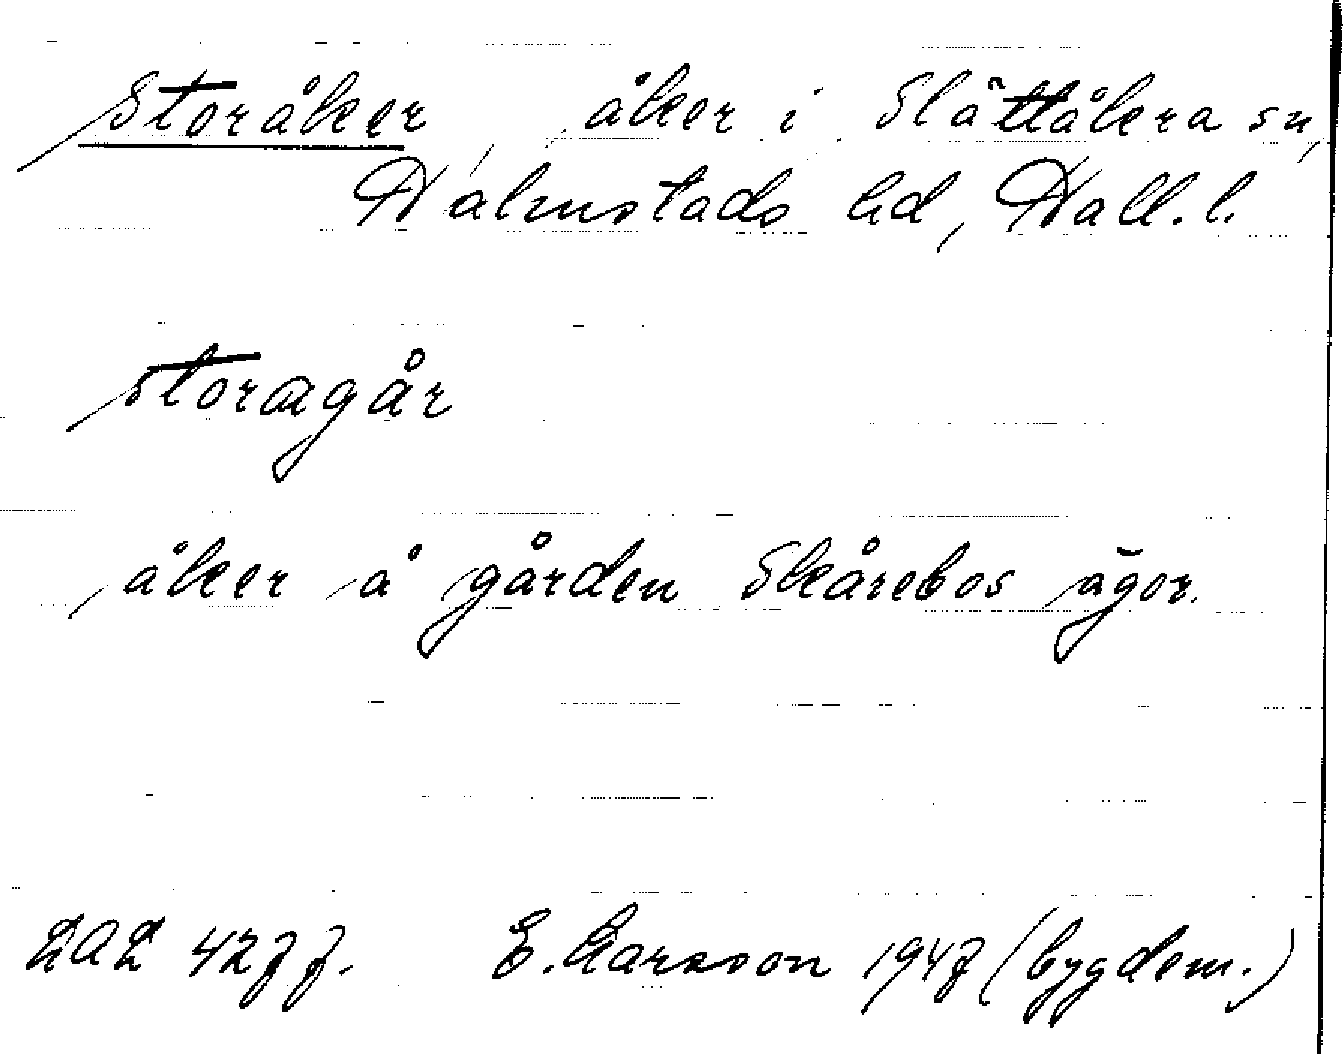 Storåker, åker i Slättåkra sn,
Halmstads hd, Hall. l.
storægår
åker å gården Skårebos ägor.
DAL 4277. E. Larsson 1947 (bygdem.)